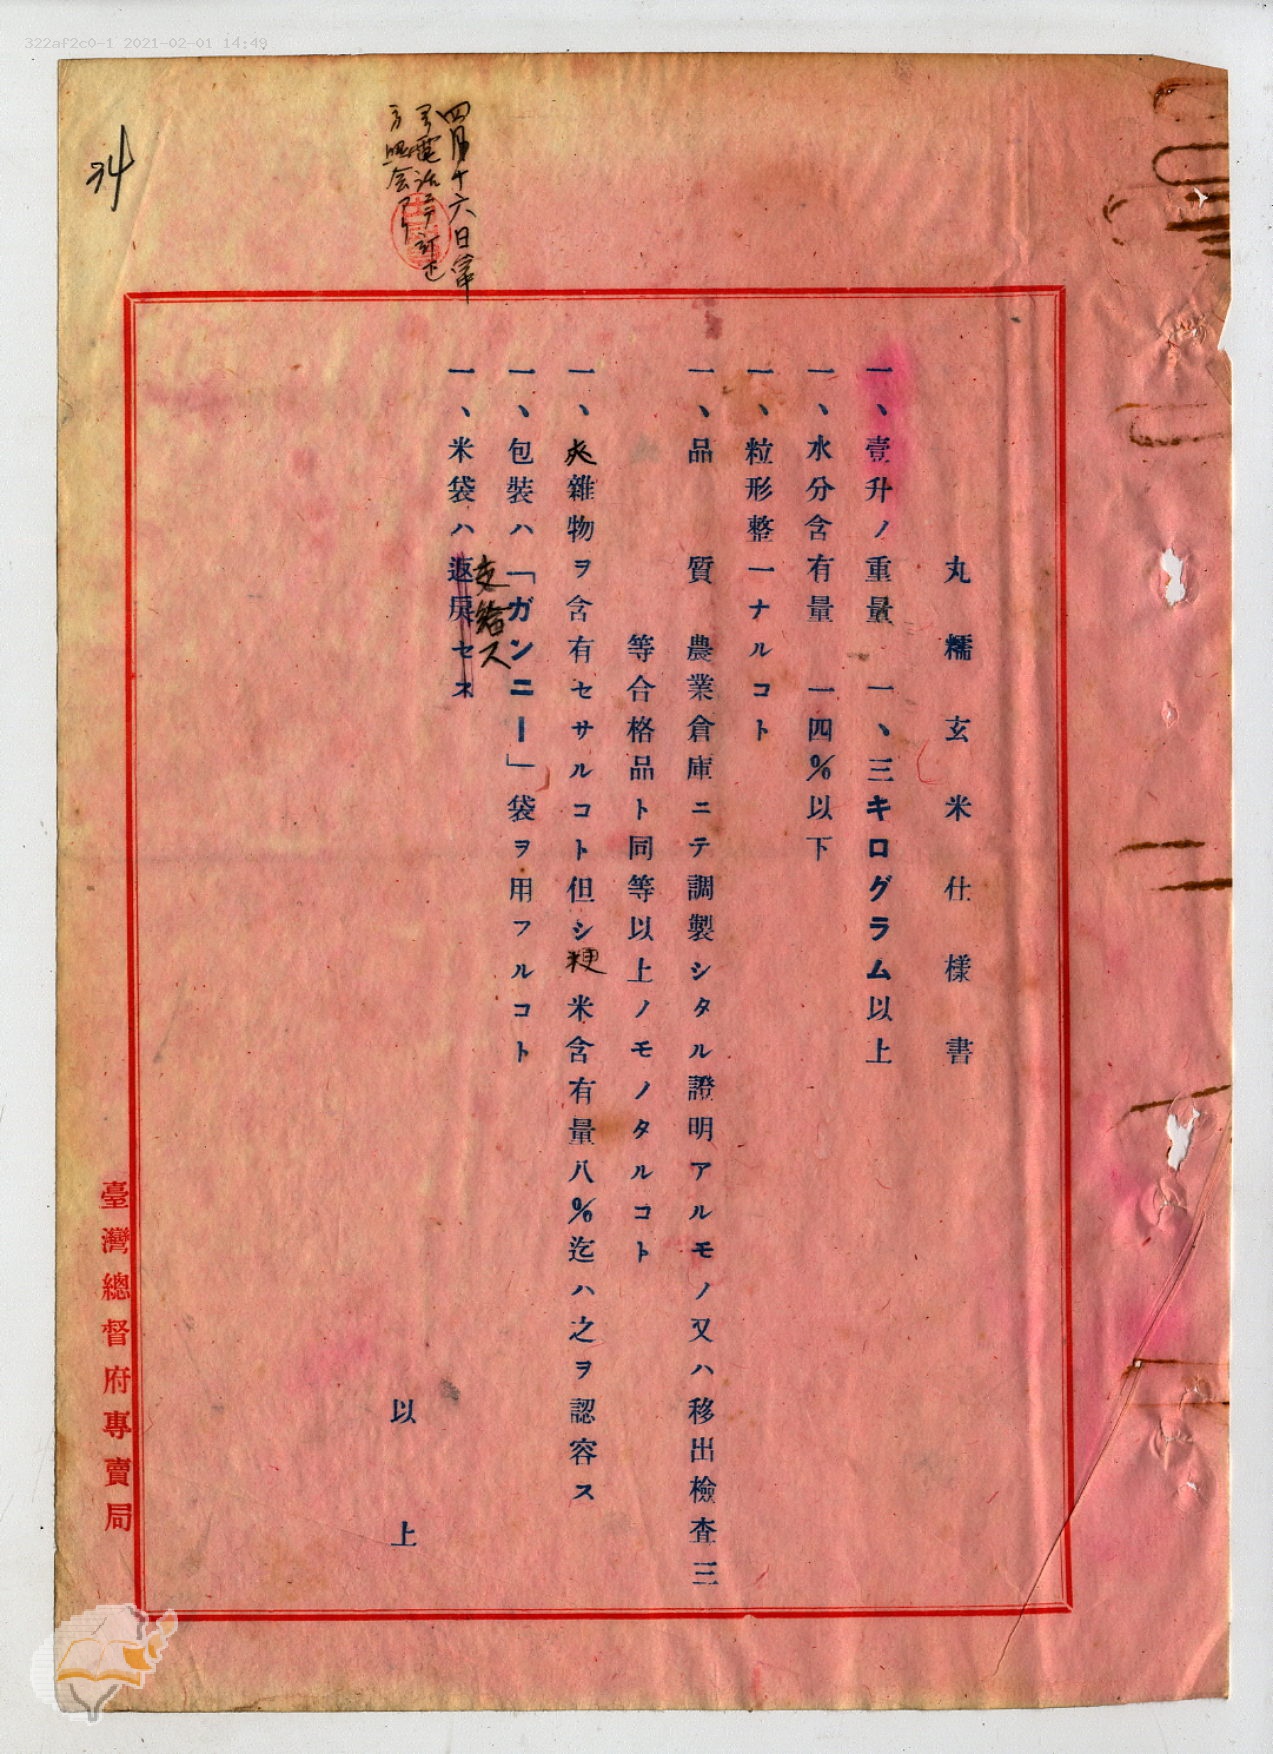 322af2c0-1 2021-02-01 14:49
四月十六日電
丸糯玄米仕様書
一、壹升ノ重量 一、三キログラム以上
一、水分含有量 一四%以下
一、粒形整一ナルコト
一、品質 農業倉庫ニテ調製シタル證明アルモノ又ハ移出檢査三
等合格品ト同等以上ノモノタルコト
一、夾雜物ヲ含有セサルコト但シ粳米含有量八%迄ハ之ヲ認容ス
一、包裝ハ「ガンニー」袋ヲ用フルコト
一、米袋ハ返戾セス
支給ス
以上
臺灣總督府專賣局